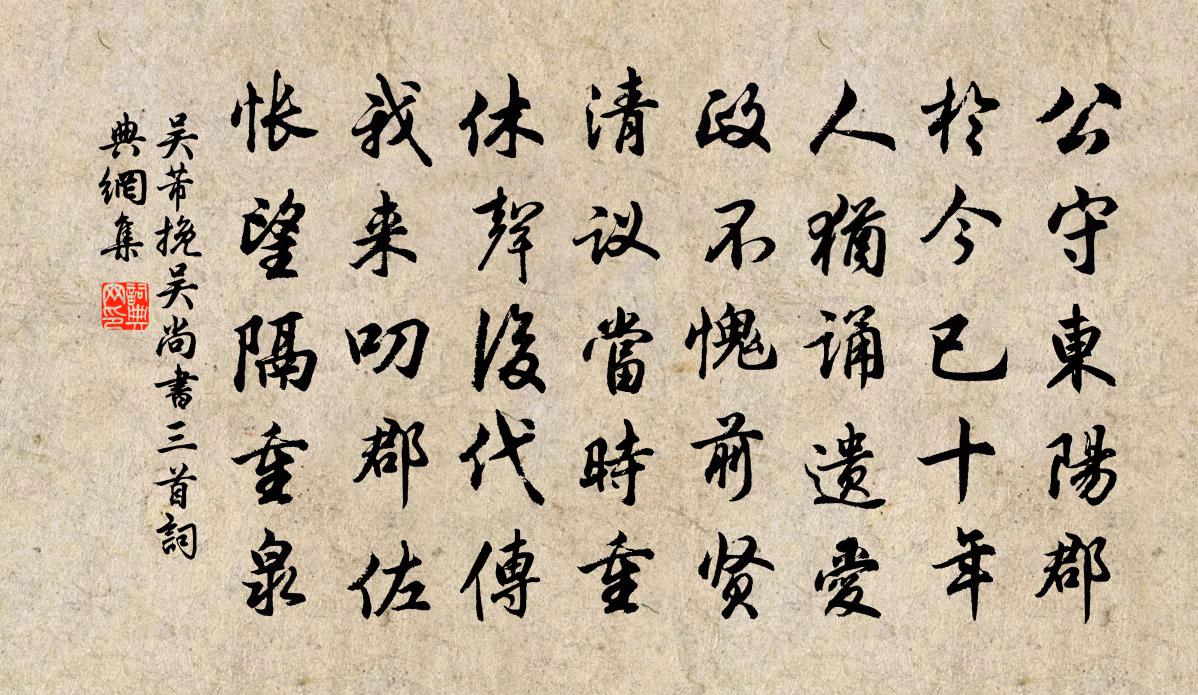 公守東陽郡
於今已十年
人猶誦遺愛
政不愧前贤
清议當時重
休聲後代傳
我来叨郡佐
怅望隔重泉
吴芾挽吴尚書三首詞
典網集
詞典网印